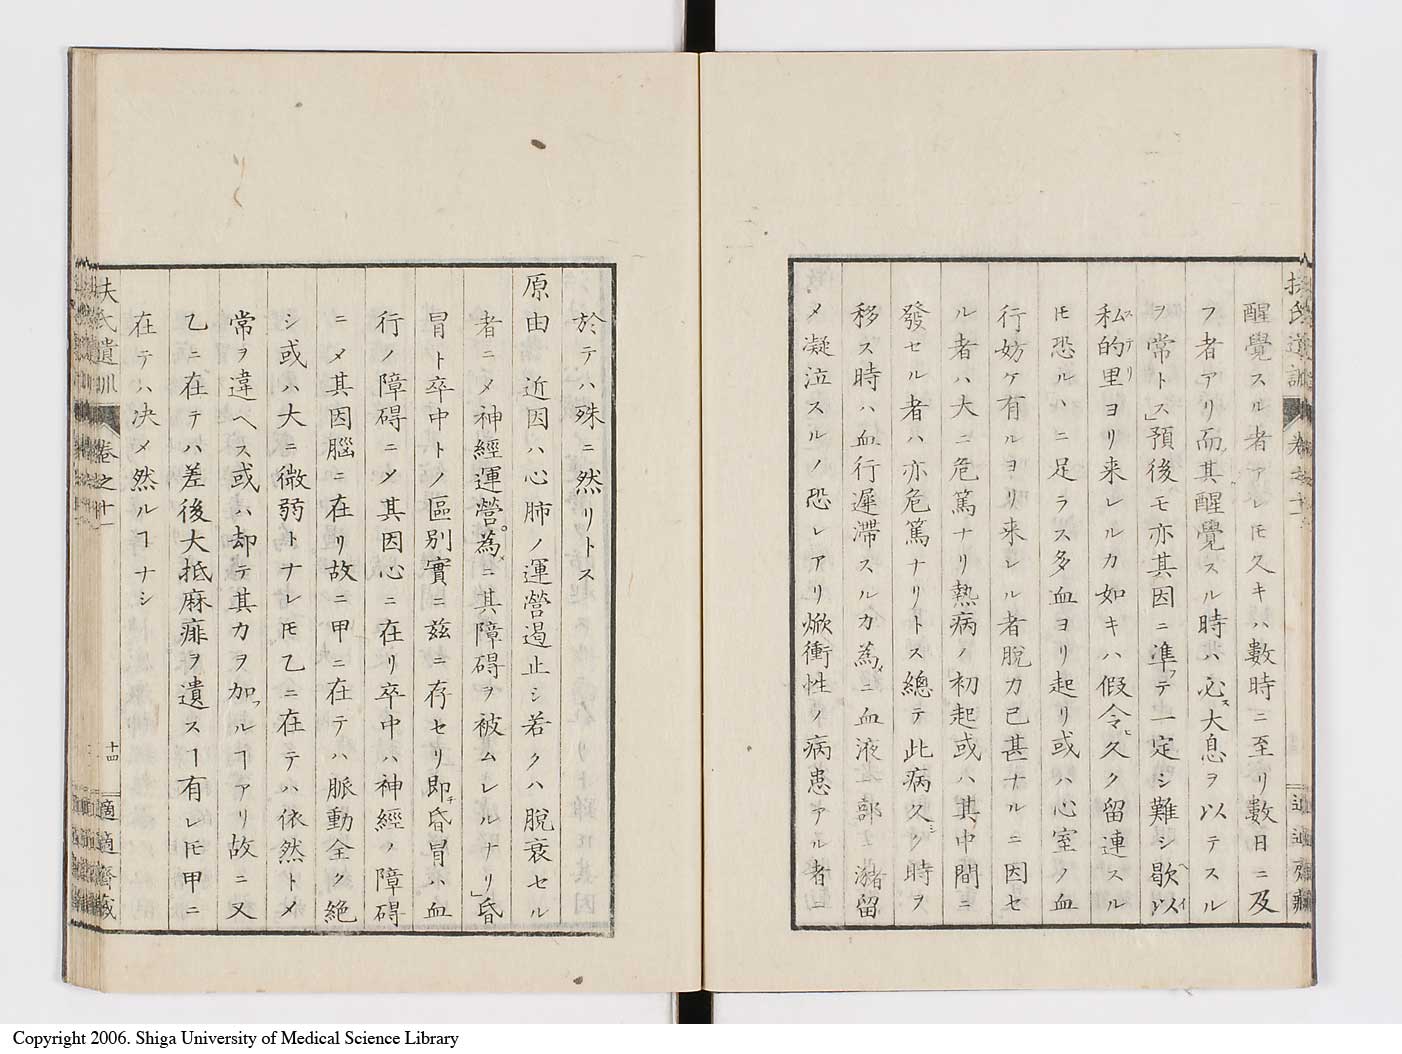 醒覺スル者アレ𪜈久キハ數時ニ至リ數日ニ及
フ者アリ而其醒覺スル時ハ必ス大息ヲ以テスル
ヲ常トス」預後モ亦其因ニ準フテ一定シ難シ歇以
私的里ヨリ来レルカ如キハ假令ヒ久ク留連スル
𪜈恐ルヽニ足ラス多血ヨリ起リ或ハ心室ノ血
行妨ケ有ルヨリ来レル者脱力已甚ナルニ因セ
ル者ハ大ニ危篤ナリ熱病ノ初起或ハ其中間ニ
發セル者ハ亦危篤ナリトス總テ此病久シク時ヲ
移ス時ハ血行遲滯スルカ為メニ血液一部ニ瀦留
メ凝泣スルノ恐レアリ焮衝性ノ病患アル者ニ
於テハ殊ニ然リトス
原由 近因ハ心肺ノ運營遏止シ若クハ脱衰セル
者ニメ神經運營。為メニ其障碍ヲ被ムレルナリ」昏
冒ト卒中トノ區別實ニ茲ニ存セリ即チ昏冒ハ血
行ノ障碍ニメ其因心ニ在リ卒中ハ神經ノ障碍
ニメ其因腦ニ在リ故ニ甲ニ在テハ脈動全ク絶
シ或ハ大ニ微弱トナレ𪜈乙ニ在テハ依然トメ
常ヲ違ヘス或ハ却テ其力ヲ加フルヿアリ故ニ又
乙ニ在テハ差後大抵麻痺ヲ遺スヿ有レ𪜈甲ニ
在テハ决メ然ルヿナシ
扶氏遺訓 卷之十一 十四 適適齋藏
Copyright 2006. Shiga University of Medical Science Library